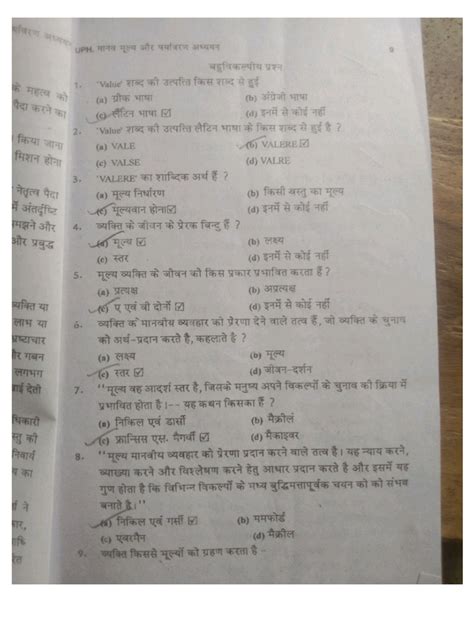 UPH. मानव मूल्य और पर्यावरण अध्ययन 9
बहुविकल्पीय प्रश्न
1. 'Value' शब्द की उत्पत्ति किस शब्द से हुई
(a) ग्रीक भाषा (b) अंग्रेजी भाषा
(c) लैटिन भाषा ☑ (d) इनमें से कोई नहीं
2. 'Value' शब्द की उत्पत्ति लैटिन भाषा के किस शब्द से हुई है ?
(a) VALE (b) VALERE ☑
(c) VALSE (d) VALRE
3. 'VALERE' का शाब्दिक अर्थ हैं ?
(a) मूल्य निर्धारण (b) किसी वस्तु का मूल्य
(c) मूल्यवान होना ☑ (d) इनमें से कोई नहीं
4. व्यक्ति के जीवन के प्रेरक बिन्दु हैं ?
(a) मूल्य ☑ (b) लक्ष्य
(c) स्तर (d) इनमें से कोई नहीं
5. मूल्य व्यक्ति के जीवन को किस प्रकार प्रभावित करता हैं ?
(a) प्रत्यक्ष (b) अप्रत्यक्ष
(c) ए एवं बी दोनों ☑ (d) इनमें से कोई नहीं
6. व्यक्ति के मानवीय व्यवहार को प्रेरणा देने वाले तत्व हैं, जो व्यक्ति के चुनाव
को अर्थ-प्रदान करते है, कहलाते है ?
(a) लक्ष्य (b) मूल्य
(c) स्तर ☑ (d) जीवन-दर्शन
7. ''मूल्य वह आदर्श स्तर है, जिसके मनुष्य अपने विकल्पों के चुनाव की क्रिया में
प्रभावित होता है।-- यह कथन किसका हैं ?
(a) निकिल एवं डार्सी (b) मैक्रील
(c) फ्रान्सिस एस. मैगर्जी ☑ (d) मैकाइवर
8. ''मूल्य मानवीय व्यवहार को प्रेरणा प्रदान करने वाले तत्व है। यह न्याय करने,
व्याख्या करने और विश्लेषण करने हेतु आधार प्रदान करते है और इसमें यह
गुण होता है कि विभिन्न विकल्पों के मध्य बुद्धिमत्तापूर्वक चयन को को संभव
बनाते है।''
(a) निकिल एवं गर्सी ☑ (b) ममफोर्ड
(c) एवरमैन (d) मैक्रील
9. व्यक्ति किससे मूल्यों को ग्रहण करता है -